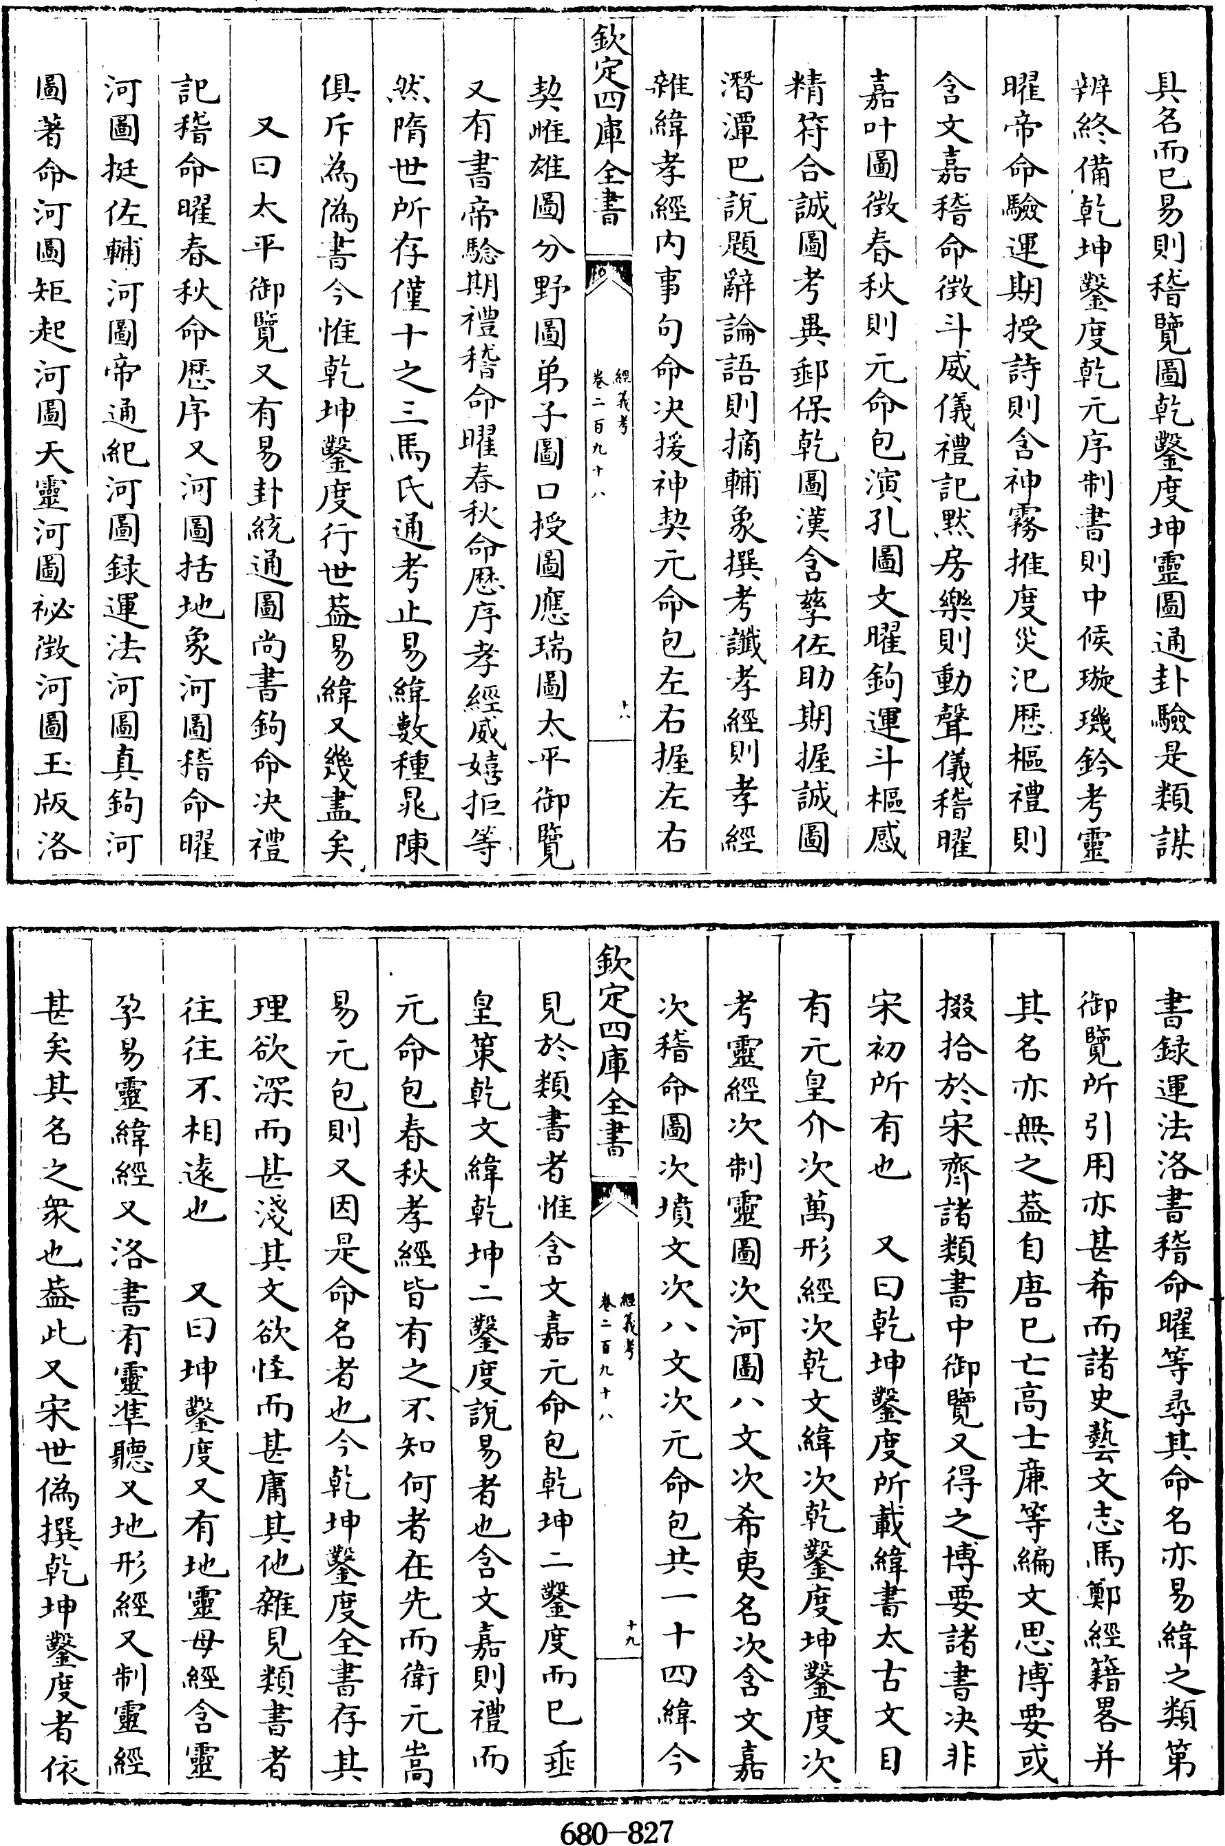 具名而已易則稽覽圖乾鑿度坤靈圖通卦驗是類謀
辨終備乾坤鑿度乾元序制書則中候璇璣鈐考靈
曜帝命驗運期授詩則含神霧推度災汜歷樞禮則
含文嘉稽命徵斗威儀禮記默房樂則動聲儀稽曜
嘉叶圖徵春秋則元命包演孔圖文曜鉤運斗樞感
精符合誠圖考異郵保乾圖漢含孳佐助期握誠圖
潛潭巴說題辭論語則摘輔象撰考讖孝經則孝經
雜緯孝經内事句命决援神契元命包左右握左右
欽定四庫全書
經義考
卷二百九十八
十八
契雌雄圖分野圖弟子圖口授圖應瑞圖太平御覽
又有書帝驗期禮稽命曜春秋命歷序孝經威嬉拒等
然隋世所存僅十之三馬氏通考止易緯數種晁陳
俱斥為偽書今惟乾坤鑿度行世葢易緯又幾盡矣
又曰太平御覽又有易卦統通圖尚書鉤命决禮
記稽命曜春秋命歷序又河圖括地象河圖稽命曜
河圖挺佐輔河圖帝通紀河圖録運法河圖真鉤河
圖著命河圖矩起河圖天靈河圖祕徵河圖玉版洛
書録運法洛書稽命曜等尋其命名亦易緯之類第
御覽所引用亦甚希而諸史藝文志馬鄭經籍畧并
其名亦無之葢自唐已亡高士亷等編文思博要或
掇拾於宋齊諸類書中御覽又得之博要諸書决非
宋初所有也　又曰乾坤鑿度所載緯書太古文目
有元皇介次萬形經次乾文緯次乾鑿度坤鑿度次
考靈經次制靈圖次河圖八文次希夷名次含文嘉
次稽命圖次墳文次八文次元命包共一十四緯今
欽定四庫全書
經義考
卷二百九十八
十九
見於類書者惟含文嘉元命包乾坤二鑿度而已垂
皇策乾文緯乾坤二鑿度說易者也含文嘉則禮而
元命包春秋孝經皆有之不知何者在先而衛元嵩
易元包則又因是命名者也今乾坤鑿度全書存其
理欲深而甚淺其文欲怪而甚庸其他雜見類書者
往往不相遠也　又曰坤鑿度又有地靈母經含靈
孕易靈緯經又洛書有靈準聽又地形經又制靈經
甚矣其名之衆也葢此又宋世偽撰乾坤鑿度者依
680-827